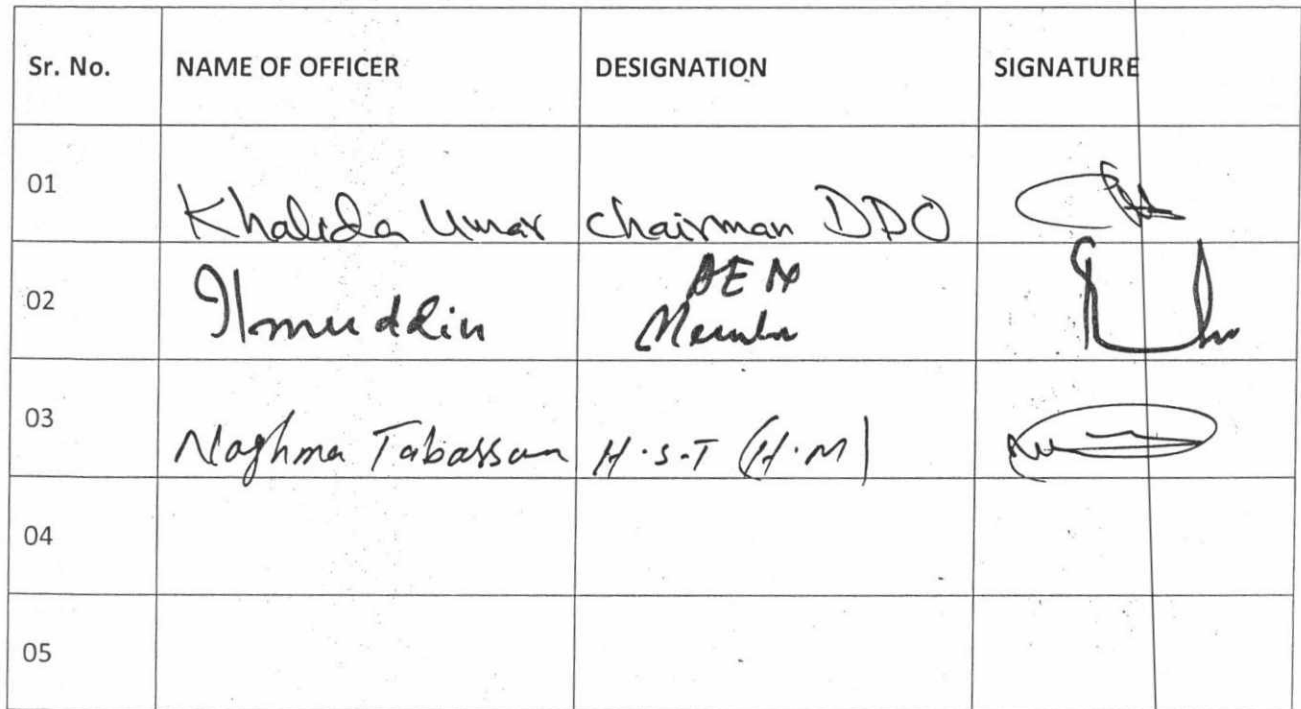 Sr. No. NAME OF OFFICER DESIGNATION SIGNATURE
01 Khalida Umar Chairman DDO
02 Ilmuddin
Member
03 Naghma Tabassum H.S.T (H.M)
04
05